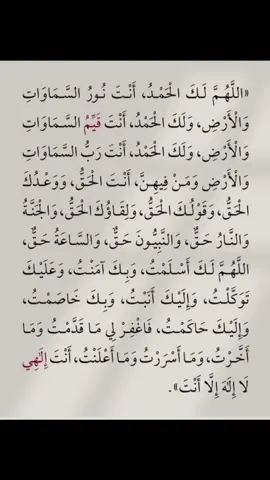 «اللَّهُمَّ لَكَ الْحَمْدُ، أَنْتَ نُورُ السَّمَاوَاتِ
وَالْأَرْضِ، وَلَكَ الْحَمْدُ، أَنْتَ قَيِّمُ السَّمَاوَاتِ
وَالْأَرْضِ، وَلَكَ الْحَمْدُ، أَنْتَ رَبُّ السَّمَاوَاتِ
وَالْأَرْضِ وَمَنْ فِيهِنَّ، أَنْتَ الْحَقُّ، وَوَعْدُكَ
الْحَقُّ، وَقَوْلُكَ الْحَقُّ، وَلِقَاؤُكَ الْحَقُّ، وَالْجَنَّةُ
وَالنَّارُ حَقٌّ، وَالنَّبِيُّونَ حَقٌّ، وَالسَّاعَةُ حَقٌّ،
اللَّهُمَّ لَكَ أَسْلَمْتُ، وَبِكَ آمَنْتُ، وَعَلَيْكَ
تَوَكَّلْتُ، وَإِلَيْكَ أَنَبْتُ، وَبِكَ خَاصَمْتُ،
وَإِلَيْكَ حَاكَمْتُ، فَاغْفِرْ لِي مَا قَدَّمْتُ وَمَا
أَخَّرْتُ، وَمَا أَسْرَرْتُ وَمَا أَعْلَنْتُ، أَنْتَ إِلَهِي
لَا إِلَهَ إِلَّا أَنْتَ».